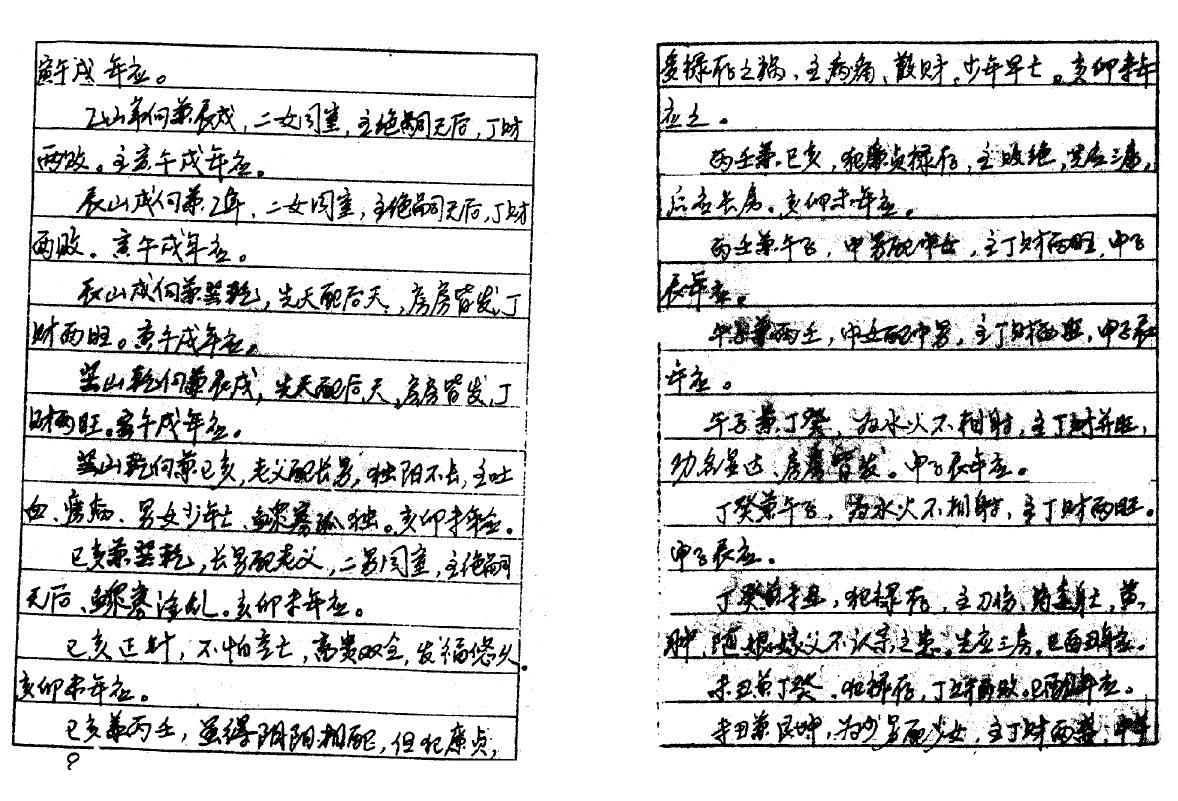 寅午戌年应。
乙山辛向兼辰戌，二女同室，主绝嗣无后，丁财
两败。主寅午戌年应。
辰山戌向兼乙辛，二女同室，主绝嗣无后，丁财
两败。寅午戌年应。
辰山戌向兼巽乾，先天配后天，房房皆发，丁
财两旺。寅午戌年应。
巽山乾向兼辰戌，先天配后天，房房皆发，丁
财两旺。寅午戌年应。
巽山乾向兼巳亥，老父配长男，独阳不长，主吐
血、痨病、男女少年亡、鳏寡孤独。亥卯未年应。
巳亥兼巽乾，长男配老父，二男同室，主绝嗣
无后、鳏寡淫乱。亥卯未年应。
巳亥正针，不怕空亡，富贵双全，发福悠久。
亥卯未年应。
巳亥兼丙壬，虽得阴阳相配，但犯廉贞，
9
受禄存之祸、主病痛、散财、少年早亡。亥卯未年
应之。
丙壬兼巳亥，犯廉贞禄存，主败绝，先应三房，
后应长房。亥卯未年应。
丙壬兼午子，中男配中女，主丁财两旺，申子
辰年应。
午子兼丙壬，中女配中男，主丁财两旺，申子辰
年应。
午子兼丁癸，为水火不相射，主丁财并旺，
功名显达、房房皆发。申子辰年应。
丁癸兼午子，为水火不相射，主丁财两旺。
申子辰应。
丁癸兼未丑，犯禄存，主刀伤、黄
肿，随娘嫁父不认宗之患。先应三房。巳酉丑年应。
未丑兼丁癸，犯禄存，丁财两败。巳酉丑年应。
未丑兼艮坤，为少男配少女，主丁财两